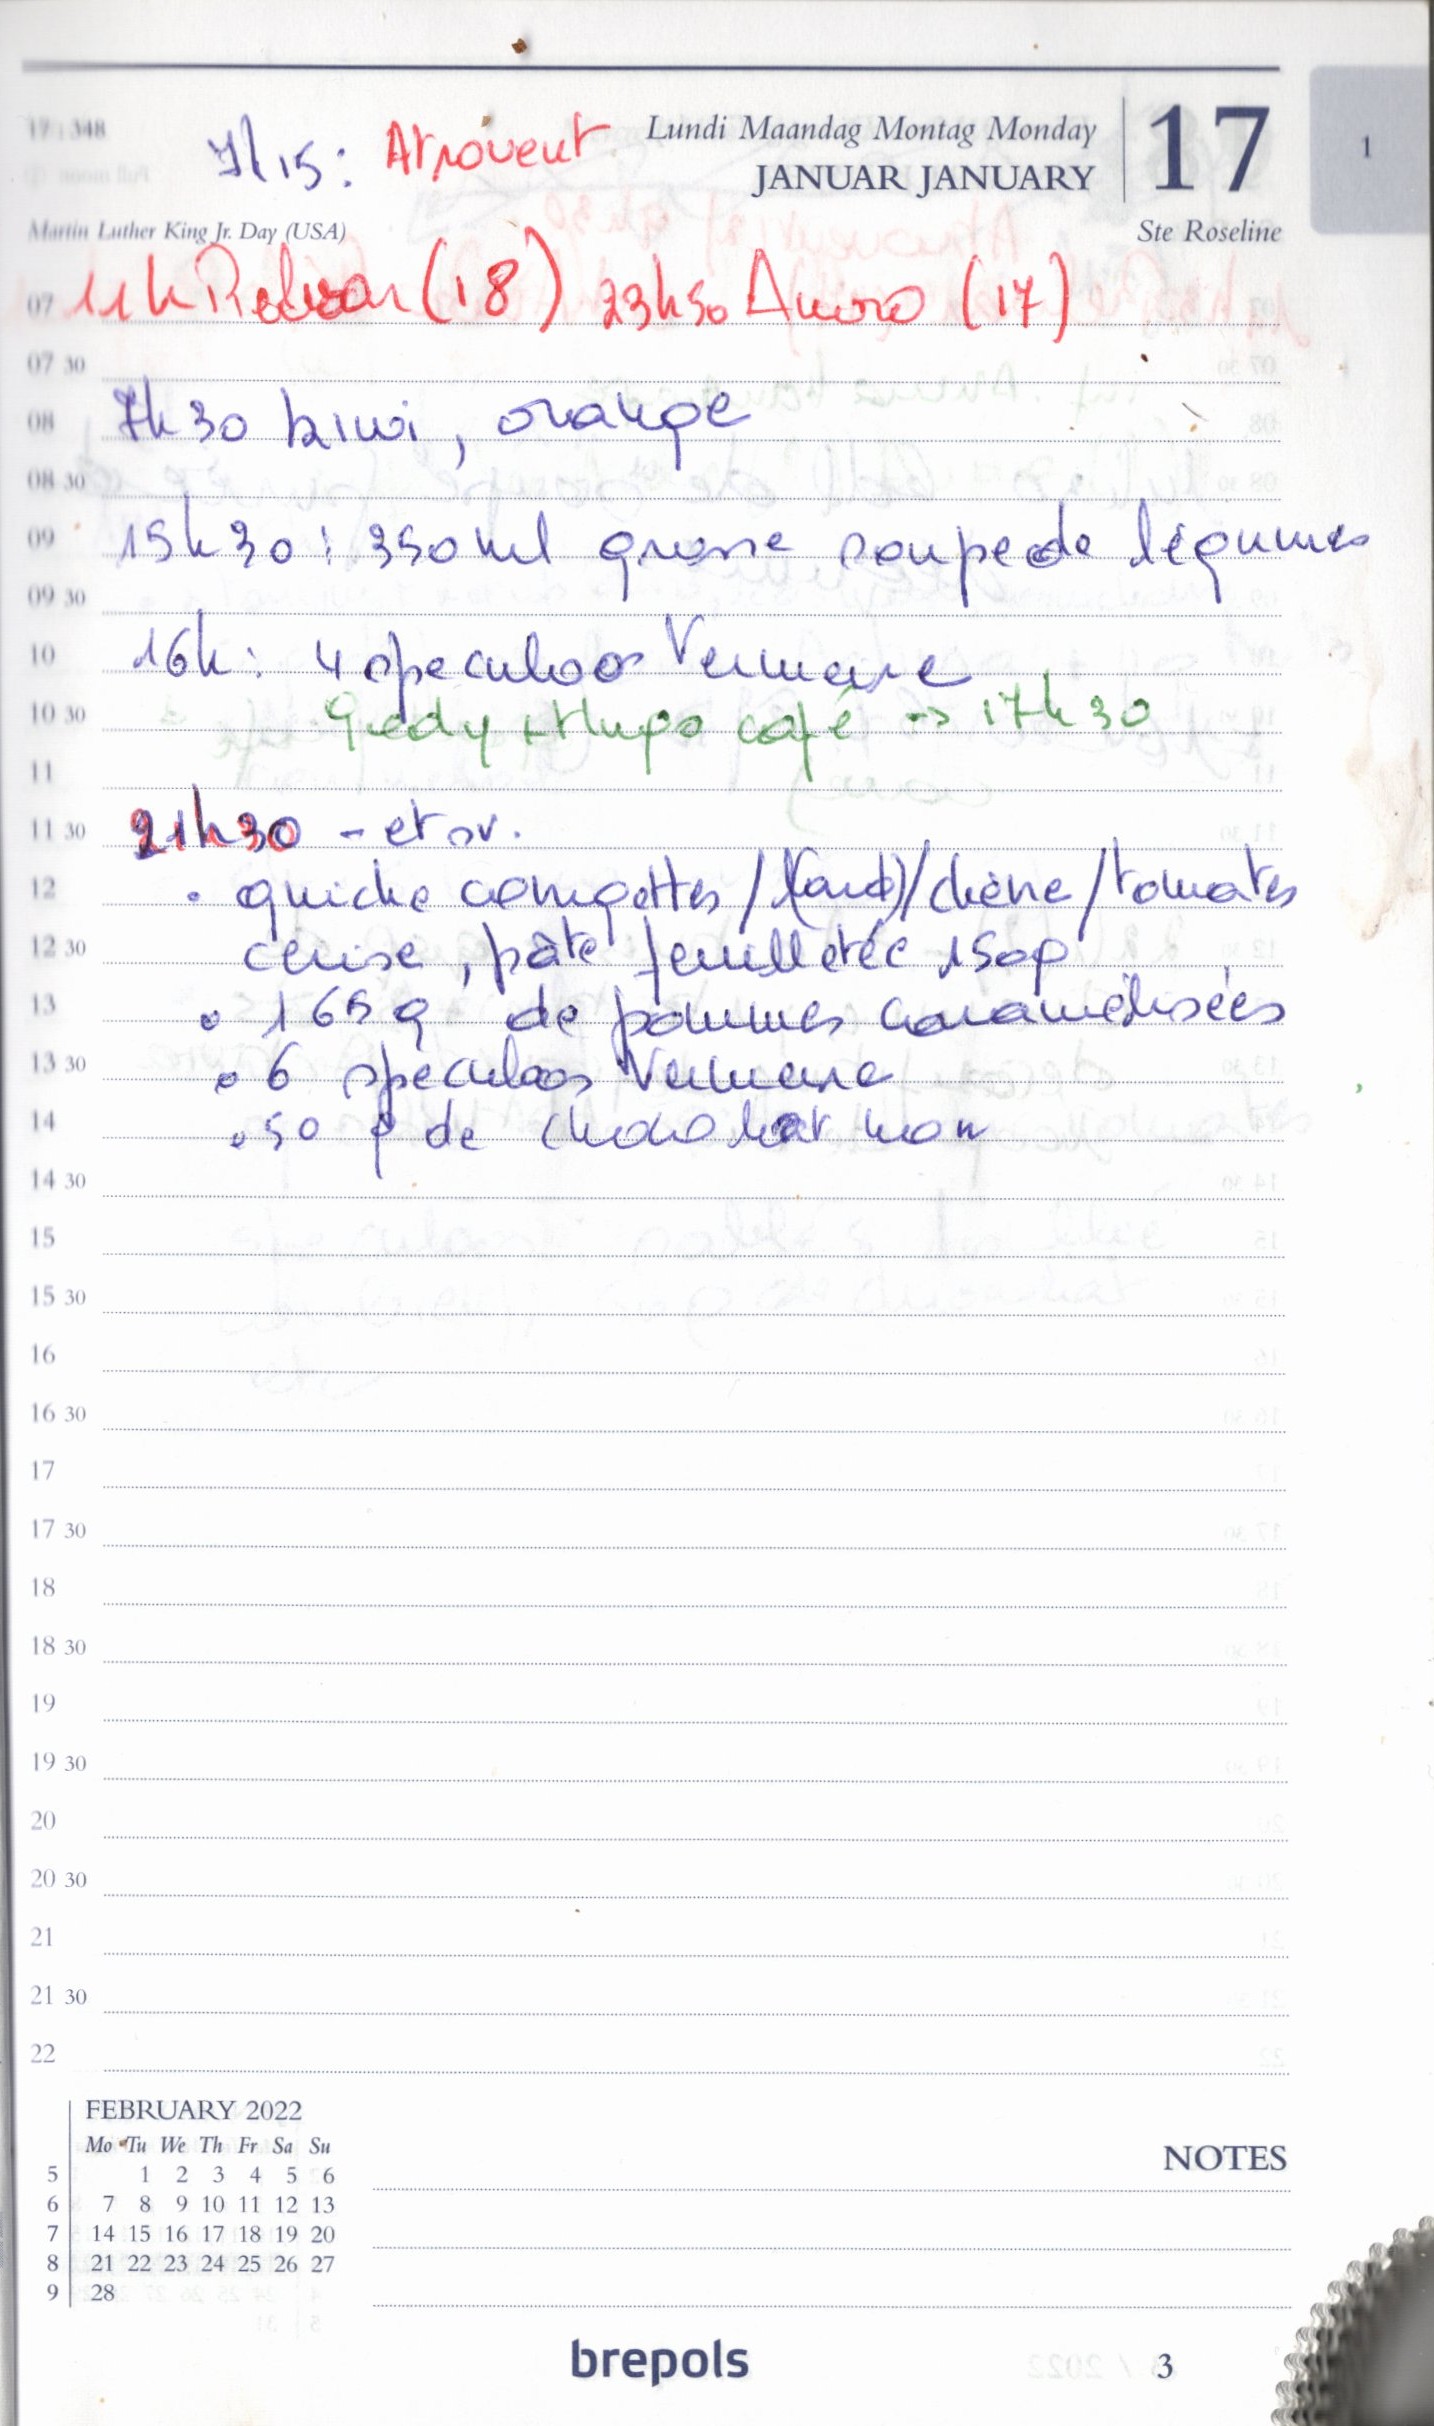 17 : 348
7h15 : Atrovent
Lundi Maandag Montag Monday
JANUAR JANUARY
17
1
Martin Luther King Jr. Day (USA)
Ste Roseline
11h Relvar (18) 23h50 Anoro (17)
07
07 30
08 7h30 kiwi, orange
08 30
09 15h30 : 350 ml grosse soupe de légumes
09 30
10 16h : 4 speculoos Vermeire
10 30 Giedy + Hugo café -> 17h30
11
11 30 21h30 - et sv.
12 • quiche courgettes / (lard) / chèvre / tomates
12 30 cerise, pâte feuilletée 150g
13 • 165 g de pommes caramélisées
13 30 • 6 speculoos Vermeire
14 • 50 g de chocolat noir
14 30
15
15 30
16
16 30
17
17 30
18
18 30
19
19 30
20
20 30
21
21 30
22
FEBRUARY 2022
Mo Tu We Th Fr Sa Su
5 1 2 3 4 5 6
6 7 8 9 10 11 12 13
7 14 15 16 17 18 19 20
8 21 22 23 24 25 26 27
9 28
NOTES
brepols
3